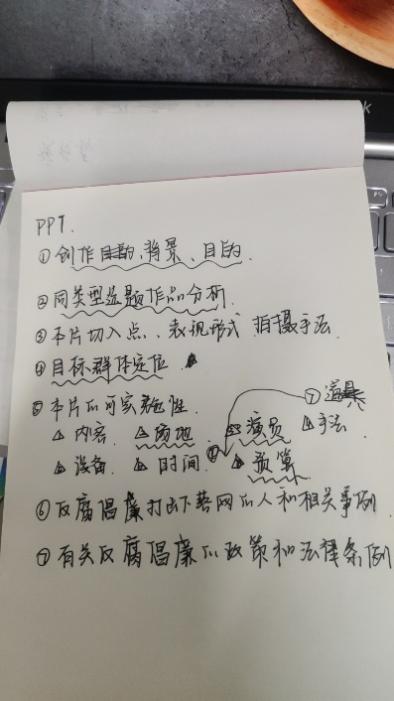 PPT.
①创作目的、背景、目的
②同类型选题作品分析.
③本片切入点、表现形式 拍摄手法
④目标群体定位
⑦道具
⑤本片的可实施性.
△内容. △场地. △演员 △手法
△设备. △时间. △预算
⑥反腐倡廉打出下落网的人和相关事例
⑦有关反腐倡廉的政策和法律条例